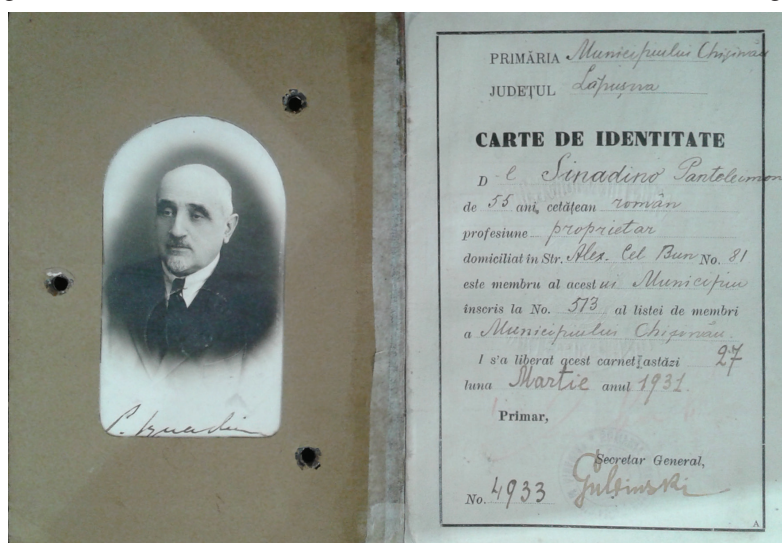 PRIMĂRIA Municipiului Chișinău
JUDEȚUL Lăpușna
CARTE DE IDENTITATE
D l Sinadino Panteleimon
de 55 ani, cetățean român
profesiune proprietar
domiciliat în Str. Alex. Cel Bun No. 81
este membru al acestui Municipiu
înscris la No. 513 al listei de membri
a Municipiului Chișinău.
I s'a liberat acest carnet astăzi 27
luna Martie anul 1931.
Primar,
Secretar General,
No. 4933
A